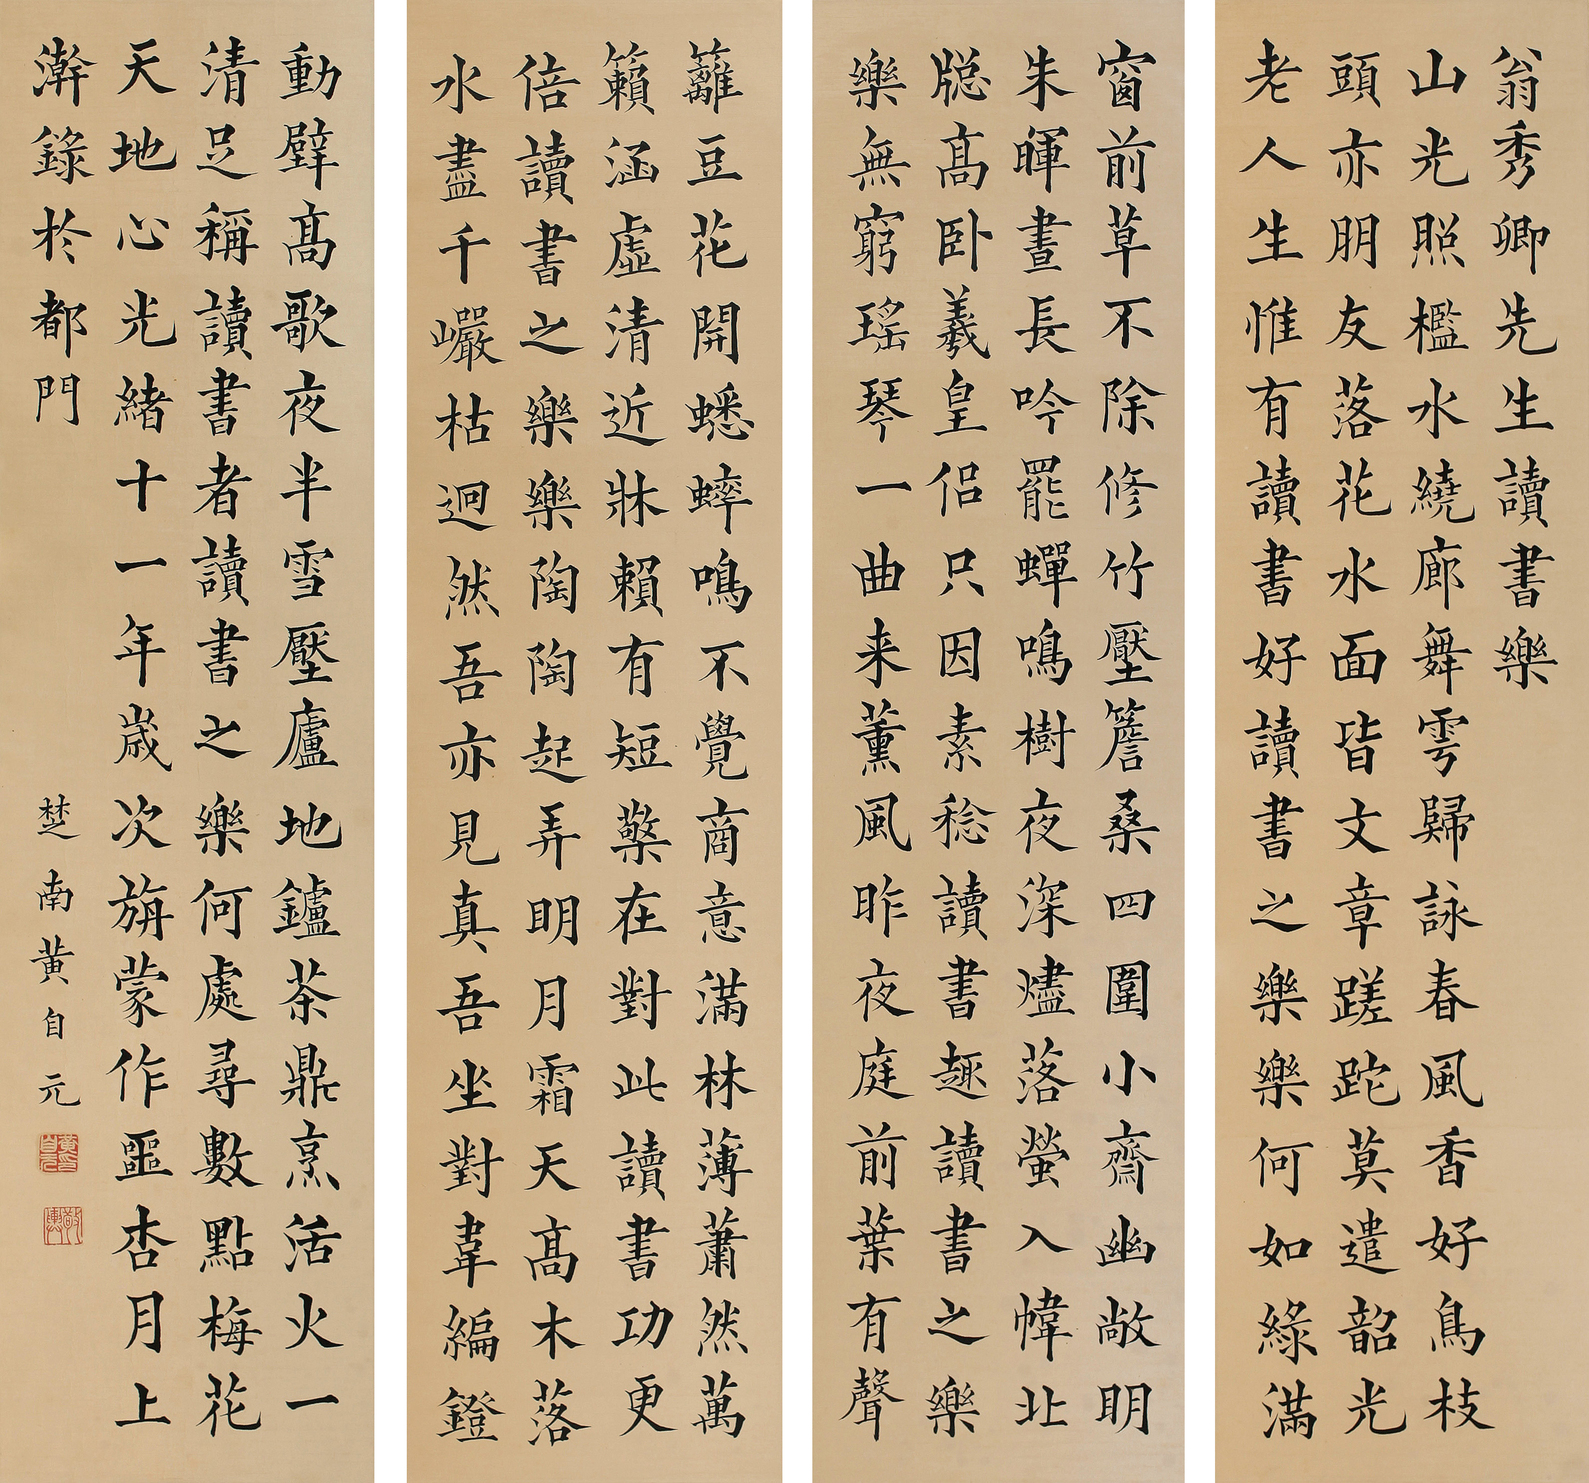 翁秀卿先生讀書樂
山光照檻水繞廊舞雩歸詠春風香好鳥枝
頭亦朋友落花水面皆文章蹉跎莫遣韶光
老人生惟有讀書好讀書之樂樂何如綠滿
窗前草不除修竹壓簷桑四圍小齋幽敞明
朱暉晝長吟罷蟬鳴樹夜深燼落螢入幃北
牕高卧羲皇侶只因素稔讀書趣讀書之樂
樂無窮瑤琴一曲来薰風昨夜庭前葉有聲
籬豆花開蟋蟀鳴不覺商意滿林薄蕭然萬
籟涵虛清近牀賴有短檠在對此讀書功更
倍讀書之樂樂陶陶起弄明月霜天高木落
水盡千巗枯迥然吾亦見真吾坐對韋編鐙
動壁高歌夜半雪壓廬地鑪茶鼎烹活火一
清足稱讀書者讀書之樂何處尋數點梅花
天地心光緒十一年歲次旃蒙作噩杏月上
澣錄於都門
楚南黃自元
黃自元印
敬輿